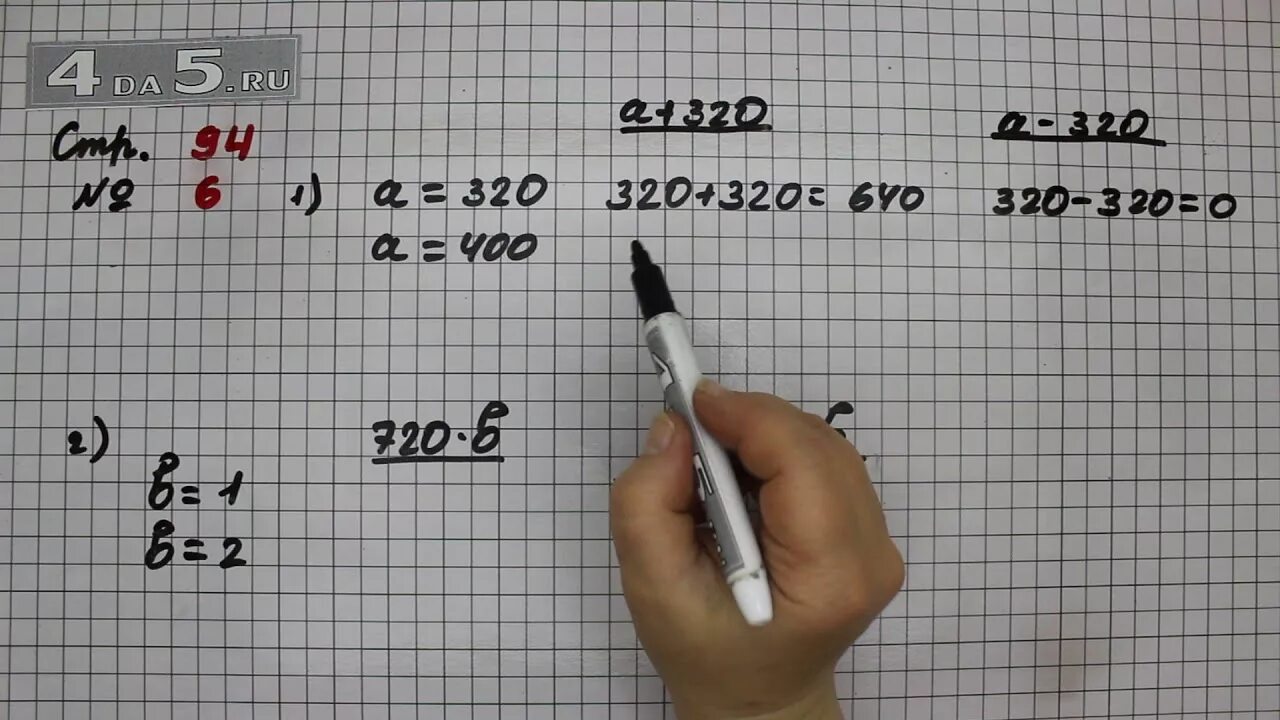 4 DA 5.RU
a+320 a-320
Стр. 94
№ 6 1) a = 320 320+320= 640 320-320=0
a = 400
2) 720·в в
в = 1
в = 2